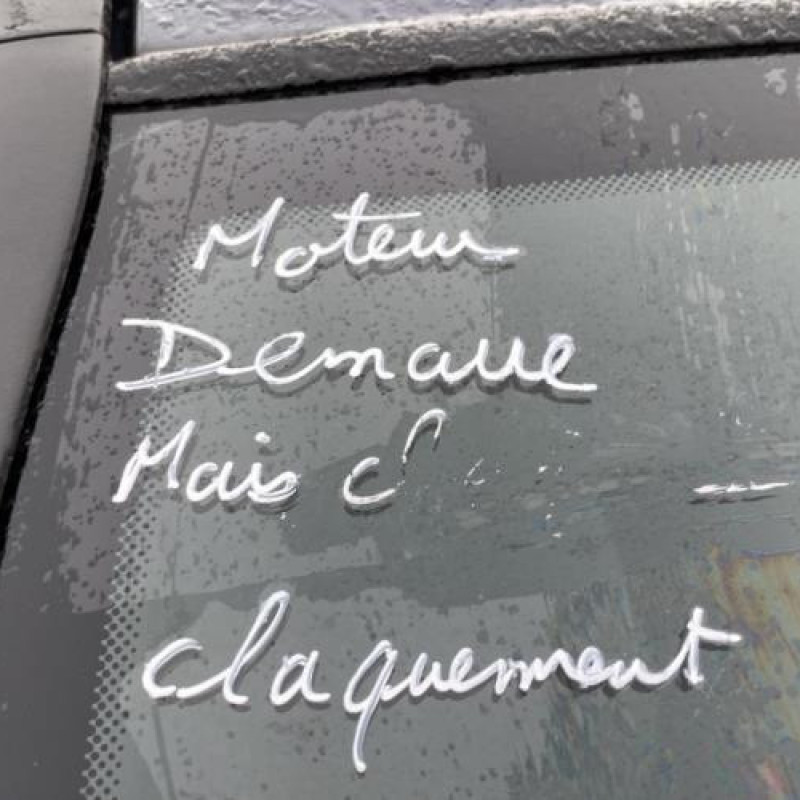 Moteur
Demarre
Mais
claquement